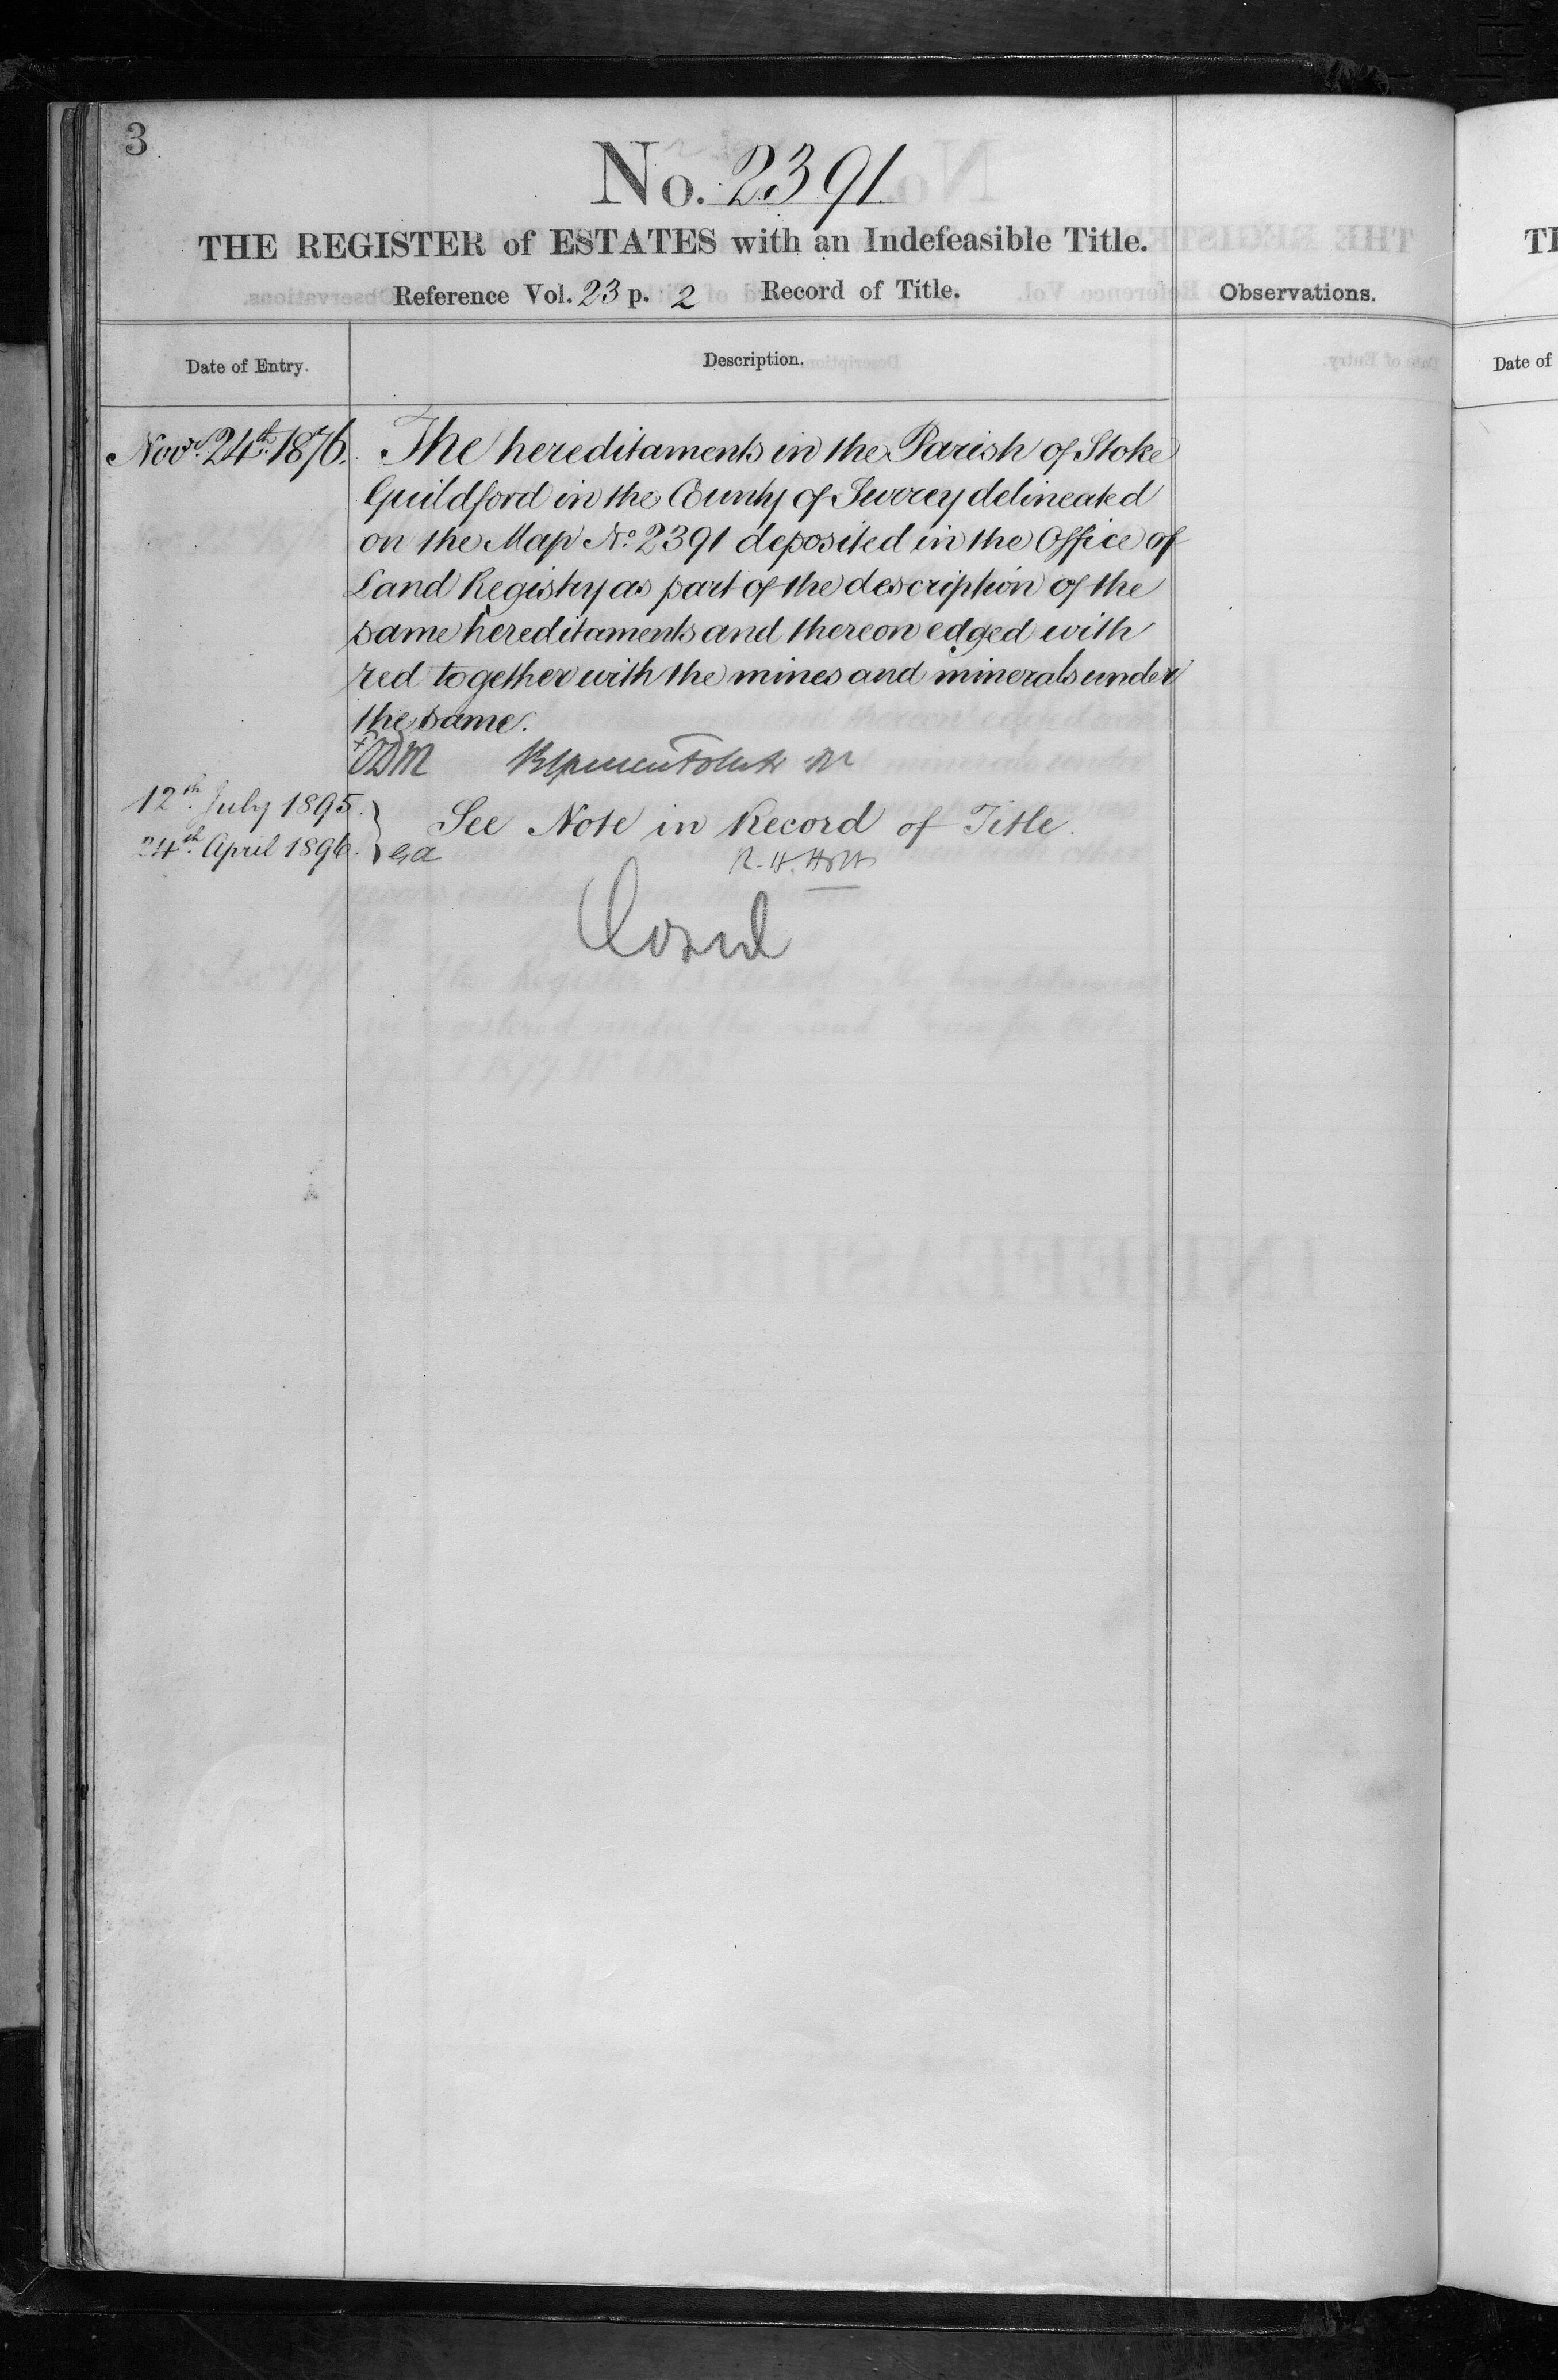 3
No. 2391
THE REGISTER of ESTATES with an Indefeasible Title.
Reference Vol. 23 p. 2 Record of Title.
Observations.
Date of Entry.
Description.
Novr. 24th. 1876.
The hereditaments in the Parish of Stoke
Guildford in the County of Surrey delineated
on the Map No. 2391 deposited in the Office of
Land Registry as part of the description of the
same hereditaments and thereon edged with
red together with the mines and minerals under
the same.
12th. July 1895.
24th. April 1896.
See Note in Record of Title.
R. H. Holt
Closed
TI
Date of